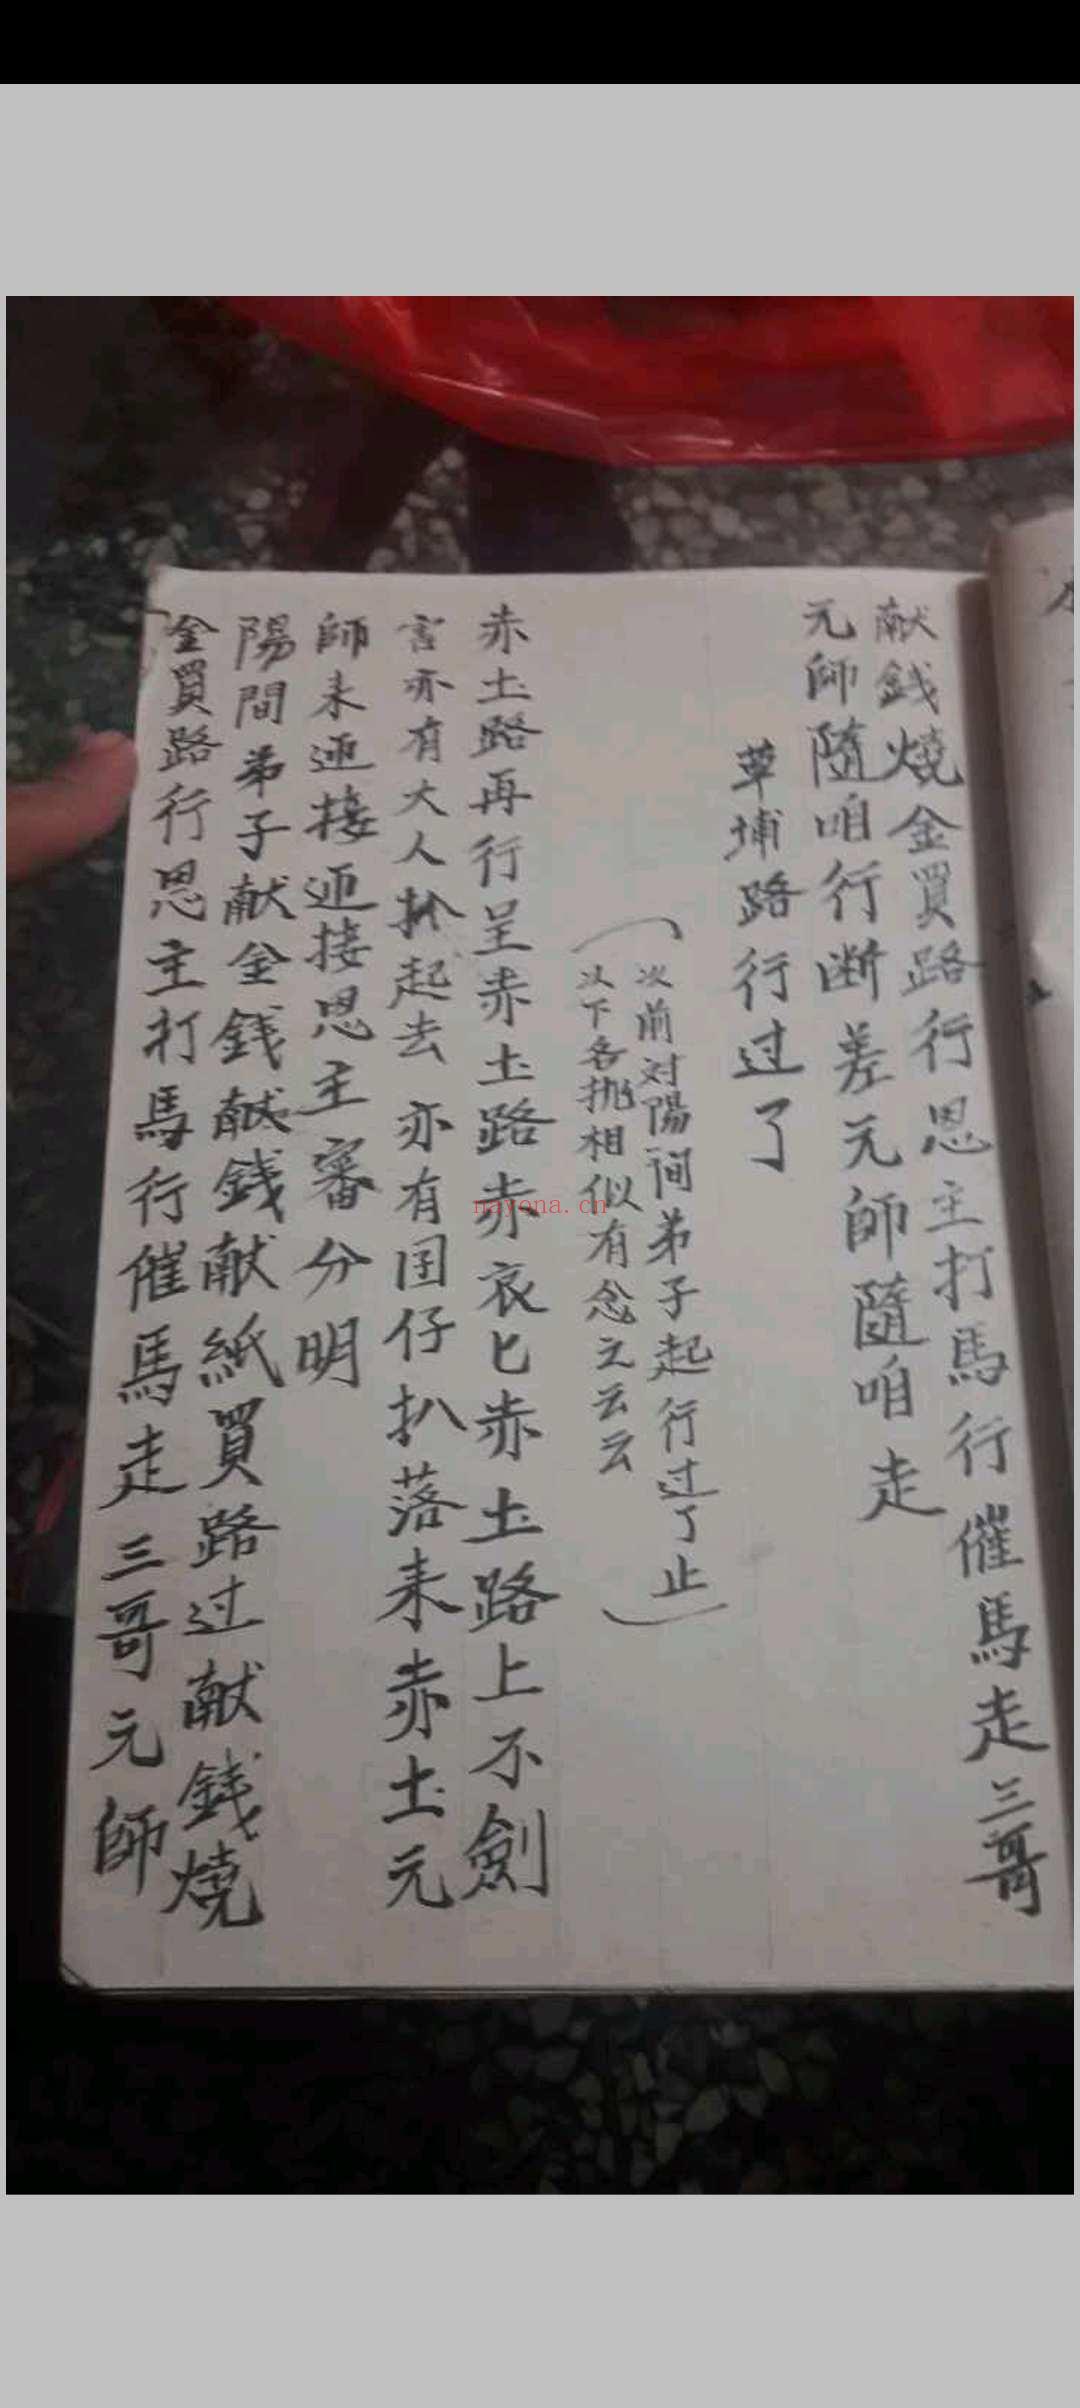 献錢燒金買路行恩主打馬行催馬走三哥
元師隨咱行断差元師隨咱走
草埔路行过了
(次前对陽间弟子起行过了止
以下各挑相似有念之云云)
赤土路再行呈赤土路赤哀匕赤土路上不劍
害亦有大人扒起去亦有囝仔扒落来赤土元
師来迎接迎接恩主審分明
陽間弟子献金錢献錢献紙買路过献錢燒
金買路行恩主打馬行催馬走三哥元師
nayona.cn